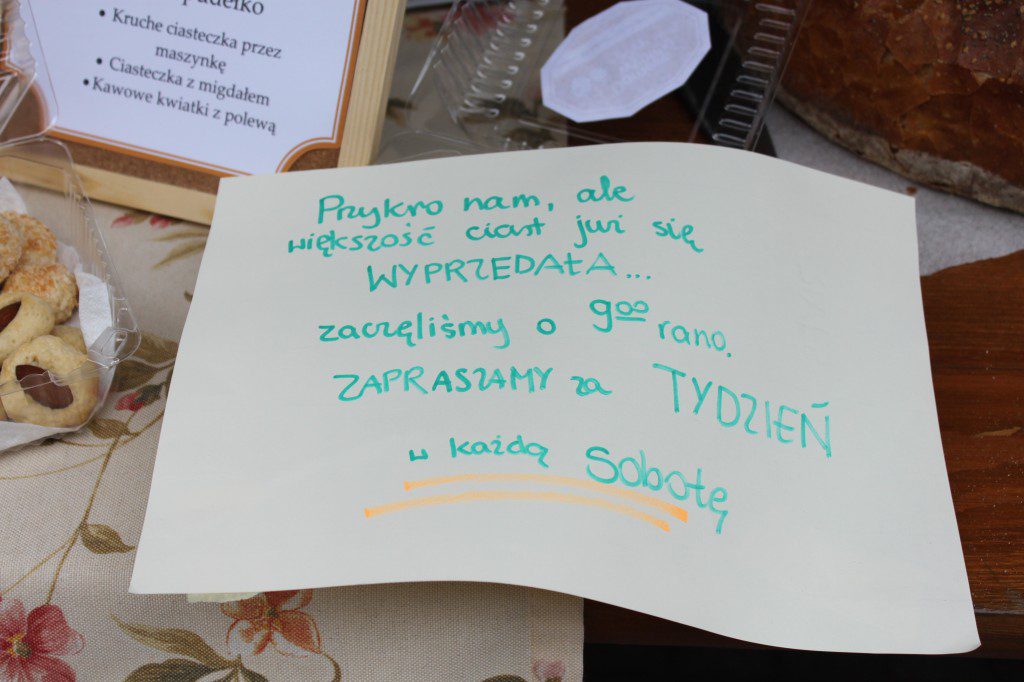 • Kruche ciasteczka przez
maszynkę
• Ciasteczka z migdałem
• Kawowe kwiatki z polewą
Przykro nam, ale
większość ciast już się
WYPRZEDAŁA...
zaczęliśmy o 9⁰⁰ rano.
ZAPRASZAMY za TYDZIEŃ
w każdą Sobotę